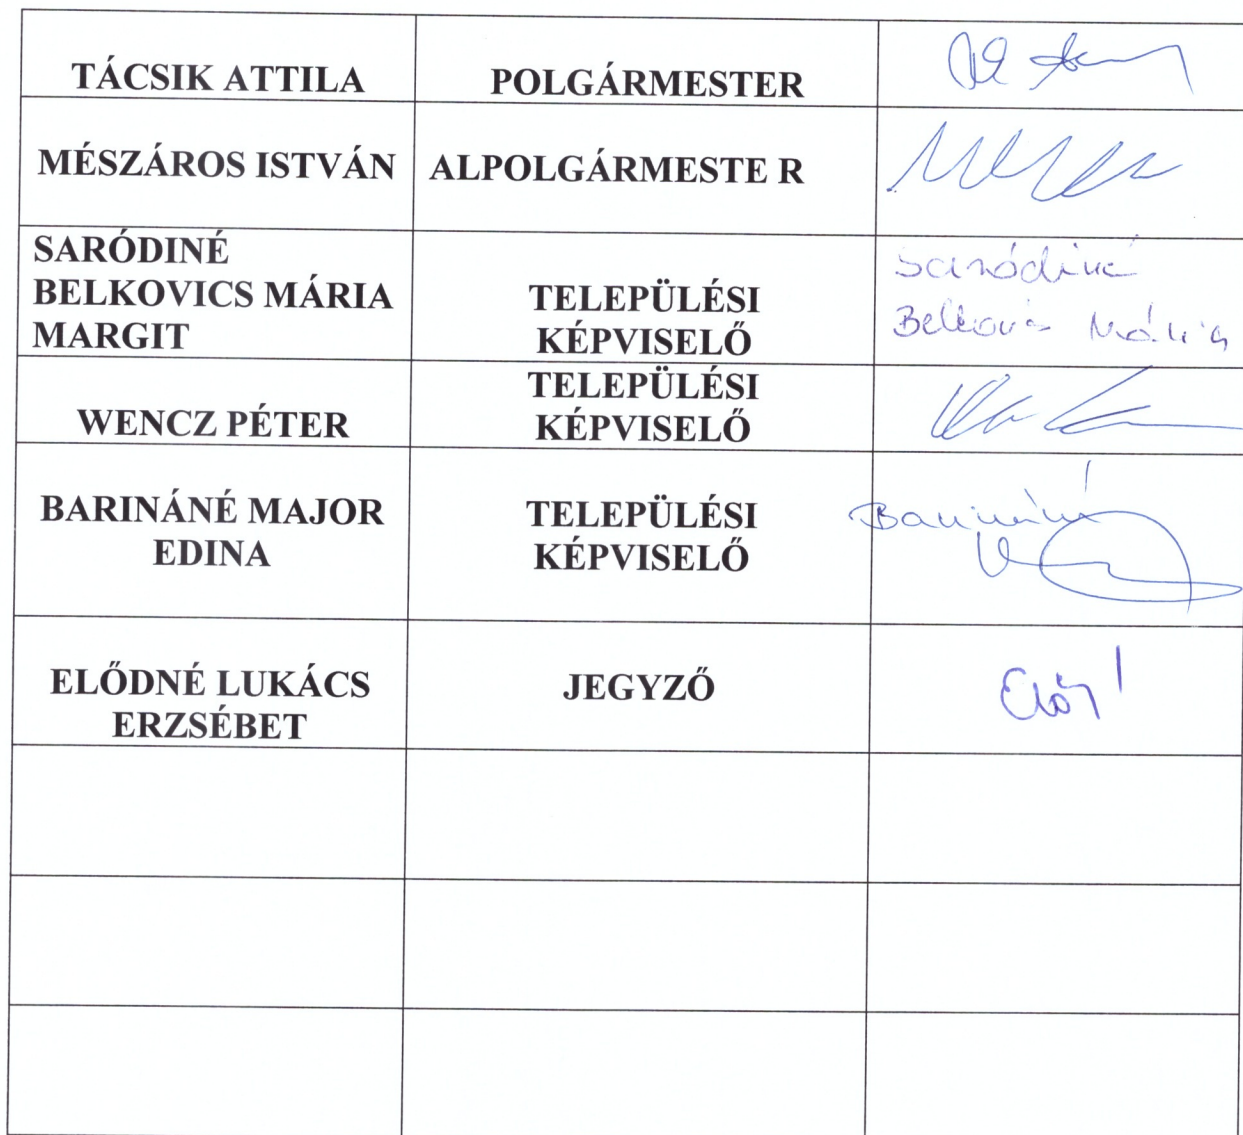 TÁCSIK ATTILA
POLGÁRMESTER
MÉSZÁROS ISTVÁN
ALPOLGÁRMESTE R
SARÓDINÉ
BELKOVICS MÁRIA
MARGIT
TELEPÜLÉSI
KÉPVISELŐ
Saródiné
Belkovics Mária
WENCZ PÉTER
TELEPÜLÉSI
KÉPVISELŐ
BARINÁNÉ MAJOR
EDINA
TELEPÜLÉSI
KÉPVISELŐ
Barináné
ELŐDNÉ LUKÁCS
ERZSÉBET
JEGYZŐ